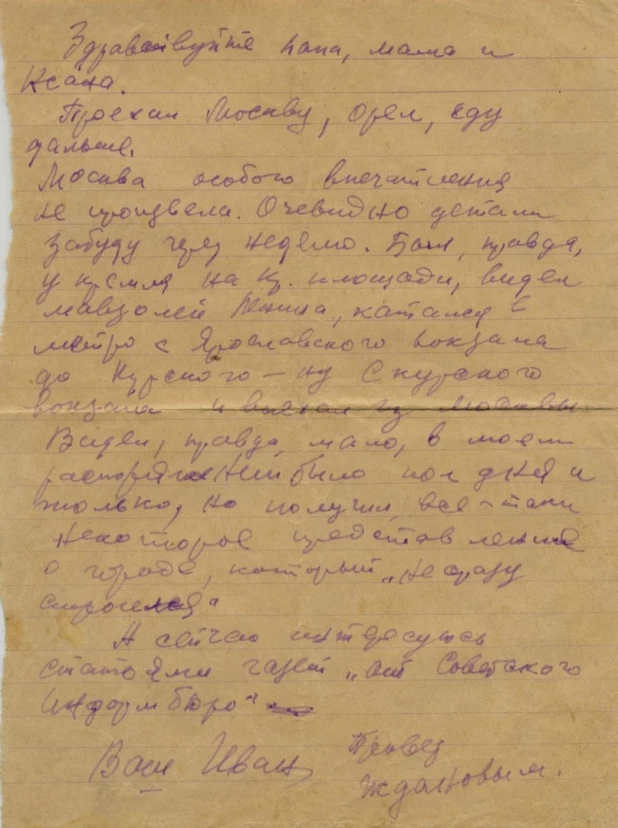 Здравствуйте папа, мама и
Ксана.
Проехал Москву, Орел, еду
дальше.
Москва особого впечатления
не произвела. Очевидно детали
забуду через неделю. Был, правда,
у кремля на Кр. площади, видел
мавзолей Ленина, катался в
метро с Ярославского вокзала
до Курского – ну с курского
вокзала и выехал из Москвы.
Видел, правда, мало, в моем
распоряжении было пол дня и
только, но получил все-таки
некоторое представление
о городе, который „не сразу
строился"
А сейчас интересуюсь
статьями газет „от Советского
Информбюро"
Ваш Иван
Привет
Ждановым.